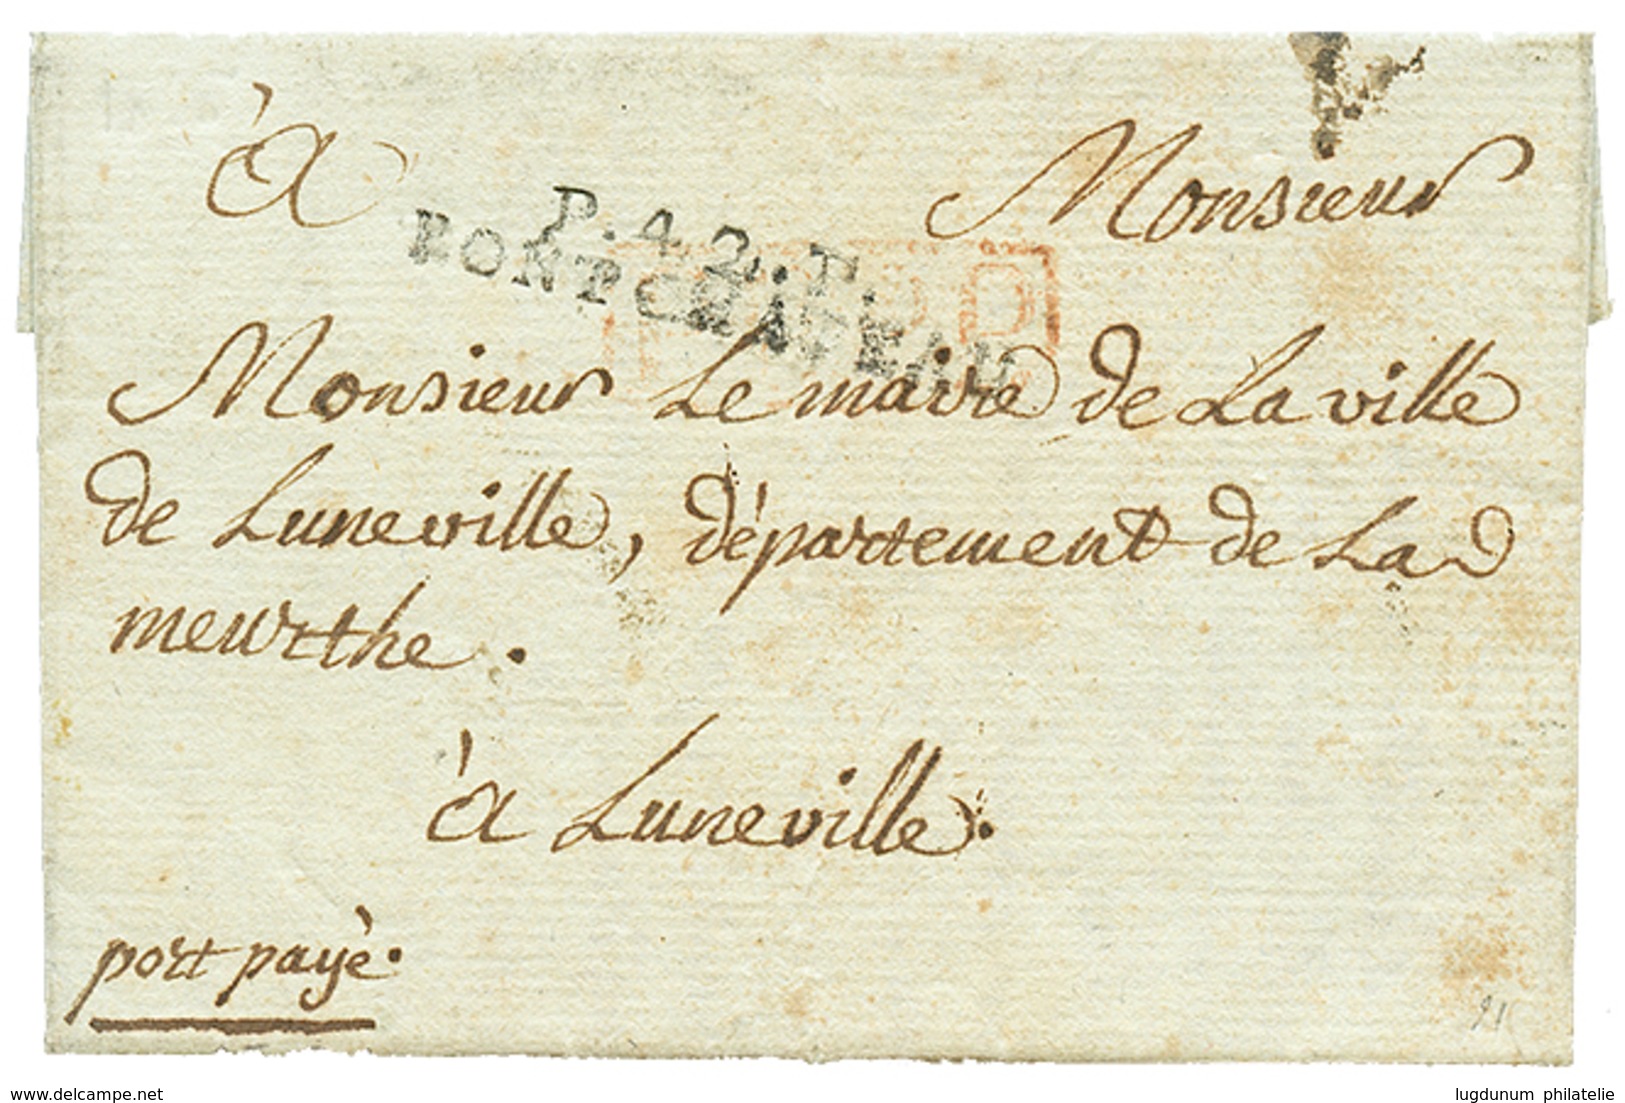 à Monsieur
P.42.P.
PONTCHATEAU
Monsieur Le maire de La ville
de Luneville, département de La
meurthe.
à Luneville.
port payè.
21
delcampe.net
lugdunum philatelie